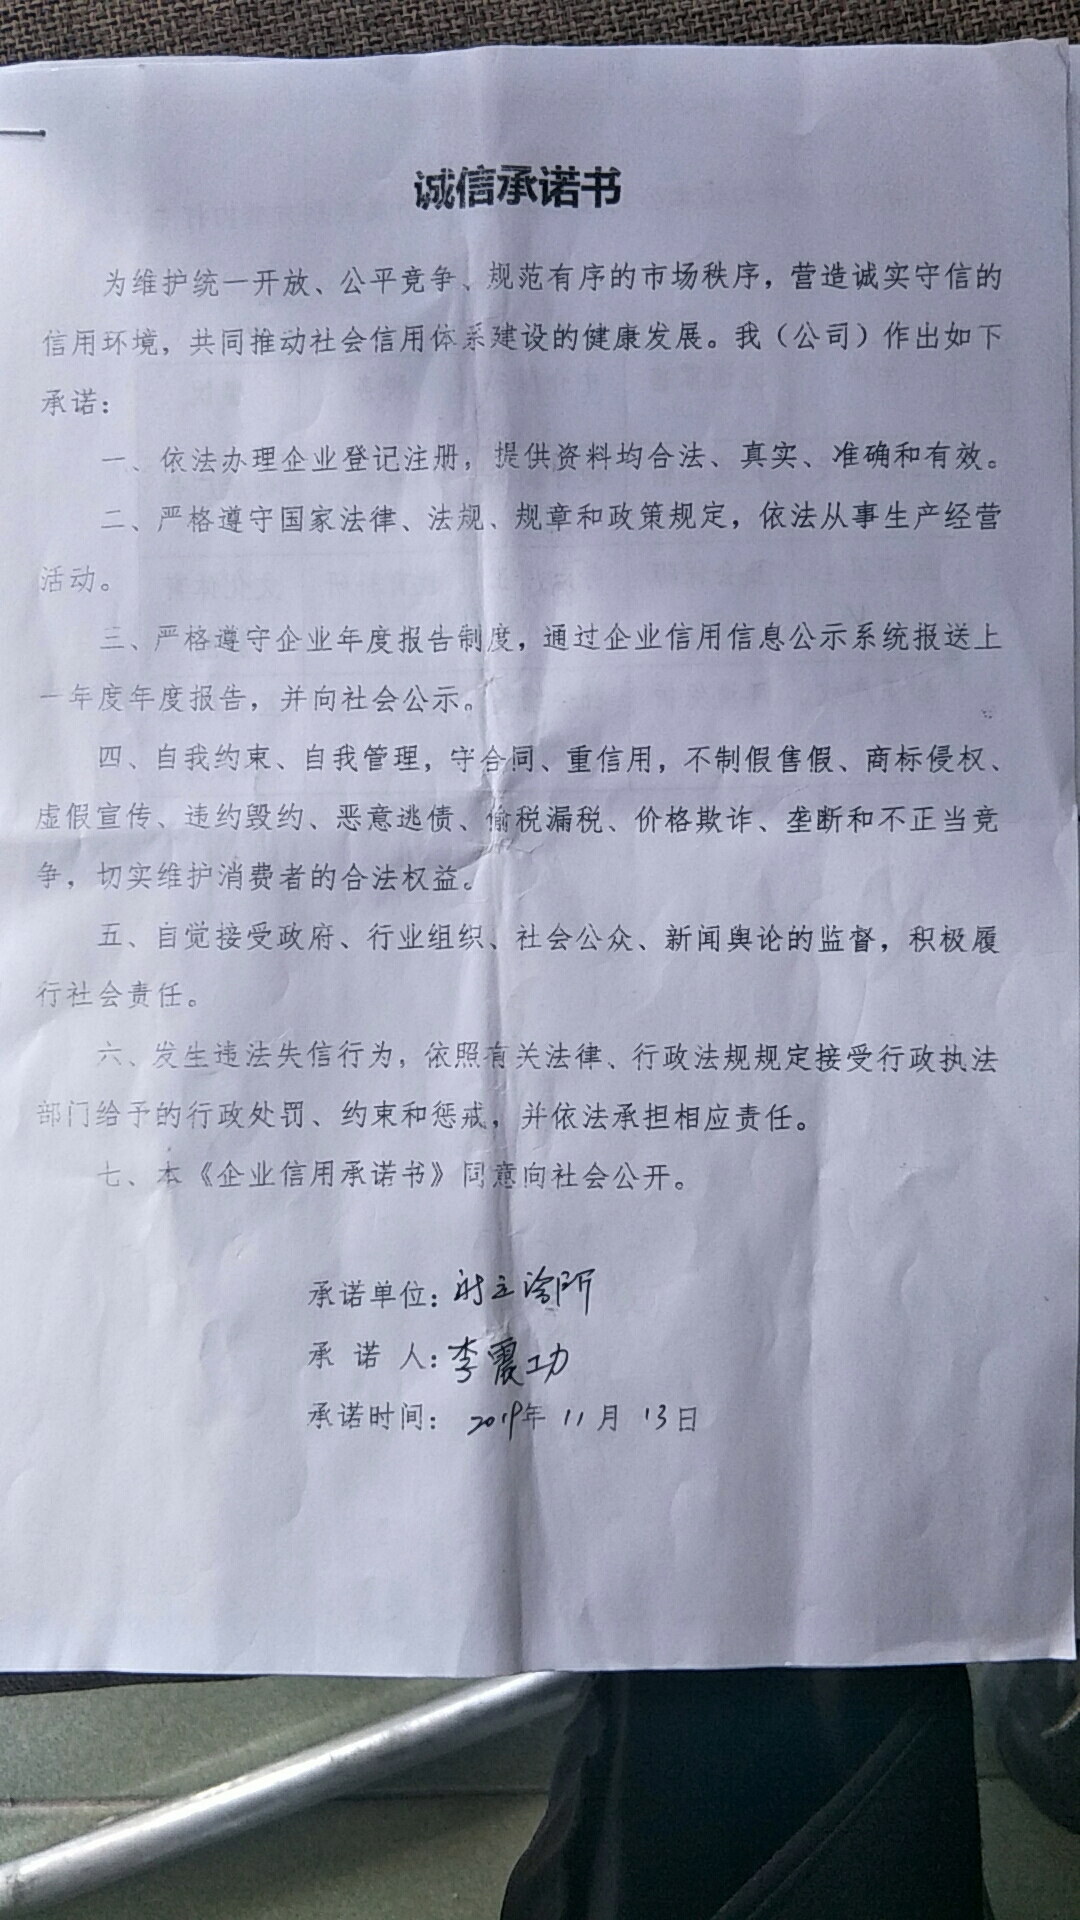 诚信承诺书
为维护统一开放、公平竞争、规范有序的市场秩序，营造诚实守信的
信用环境，共同推动社会信用体系建设的健康发展。我（公司）作出如下
承诺：
一、依法办理企业登记注册，提供资料均合法、真实、准确和有效。
二、严格遵守国家法律、法规、规章和政策规定，依法从事生产经营
活动。
三、严格遵守企业年度报告制度，通过企业信用信息公示系统报送上
一年度年度报告，并向社会公示。
四、自我约束、自我管理，守合同、重信用，不制假售假、商标侵权、
虚假宣传、违约毁约、恶意逃债、偷税漏税、价格欺诈、垄断和不正当竞
争，切实维护消费者的合法权益。
五、自觉接受政府、行业组织、社会公众、新闻舆论的监督，积极履
行社会责任。
六、发生违法失信行为，依照有关法律、行政法规规定接受行政执法
部门给予的行政处罚、约束和惩戒，并依法承担相应责任。
七、本《企业信用承诺书》同意向社会公开。
承诺单位：诊所
承 诺 人：李震功
承诺时间：2019年 11月 13日